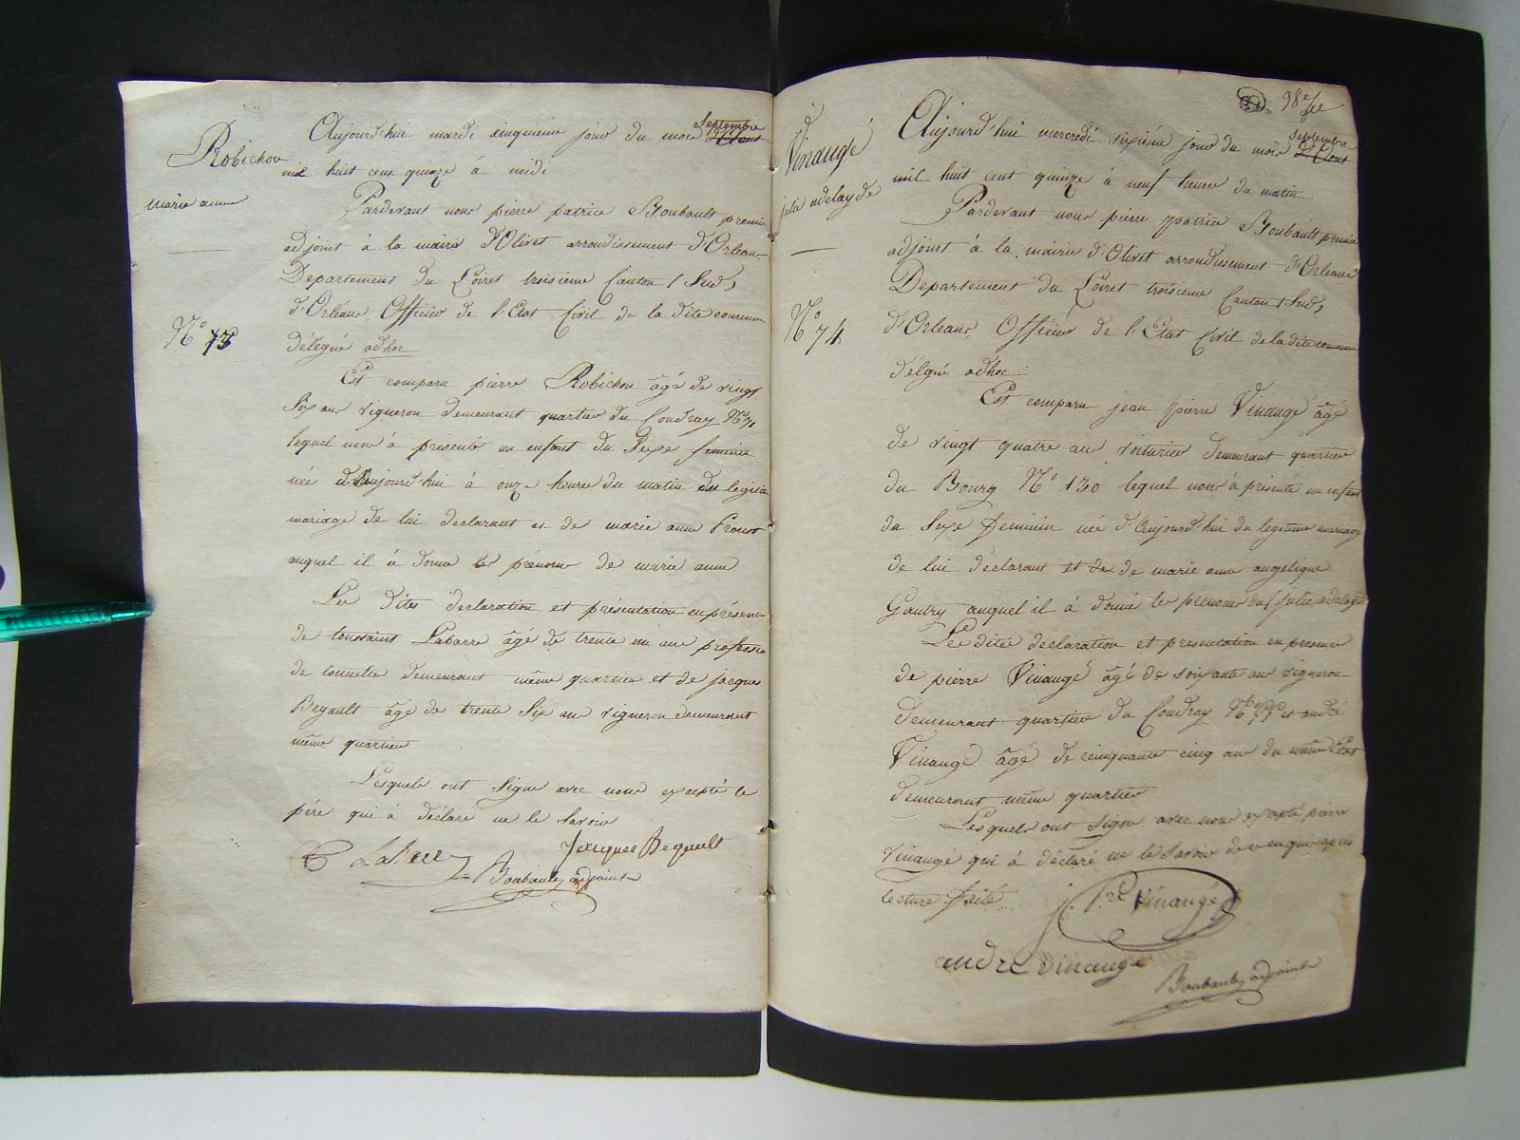 Robichon
marie anne
N° 73
Aujourd'hui mardi cinquieme jour du mois Septembre
mil huit cent quinze à midi
Pardevant nous pierre patrice Boubault premier
adjoint à la mairie d'Olivet arrondissement d'Orleans
Departement du Loiret troisieme Canton (Sud)
d'Orléans Officier de l'Etat Civil de la dite commune
délégué adhoc
Est comparu pierre Robichon âgé de vingt
Six ans vigneron demeurant quartier du Coudray N°
lequel nous à presenté un enfant du Sexe feminin
née d'Aujourd'hui à onze heures du matin du legitime
mariage de lui declarant et de marie anne Proust
auquel il à donné les prénoms de marie anne
Les dites declaration et présentation en présence
de toussaint Labarre âgé de trente un ans professeur
de demeurant même quartier et de jacques
Begault âgé de trente Six ans vigneron demeurant
même quartier
Lesquels ont Signé avec nous excepté le
père qui à déclaré ne le Savoir
Jacques Begault
Boubault adjoint
98e
Vinaugé
julie adelayde
N° 74
Aujourd'hui mercredi sixiéme jour du mois septembre
mil huit cent quinze à neuf heures du matin
Pardevant nous pierre patrice Boubault premier
adjoint à la mairie d'Olivet arrondissement d'Orleans
Departement du Loiret troisieme Canton (Sud)
d'Orleans Officier de l'Etat Civil de la dite commune
délgué adhoc
Est comparu jean pierre Vinaugé âgé
de vingt quatre ans voiturier demeurant quartier
du Bourg N° 130 lequel nous à présenté un enfant
du Sexe feminin née d'Aujourd'hui du legitime mariage
de lui déclarant et de de marie anne angelique
Gautry auquel il à donné les prénoms de julie adelayde
Les dites declaration et presentation en presence
de pierre Vinaugé âgé de soixante ans vigneron
demeurant quartier du Coudray N° et andré
Vinaugé âgé de cinquante cinq ans du même Etat
demeurant même quartier
Lesquels ont Signé avec nous excepté pierre
Vinaugé qui à déclaré ne le Savoir de ce enquis après
lecture faite
j. Pre Vinaugé
andre vinauge
Boubault adjoint